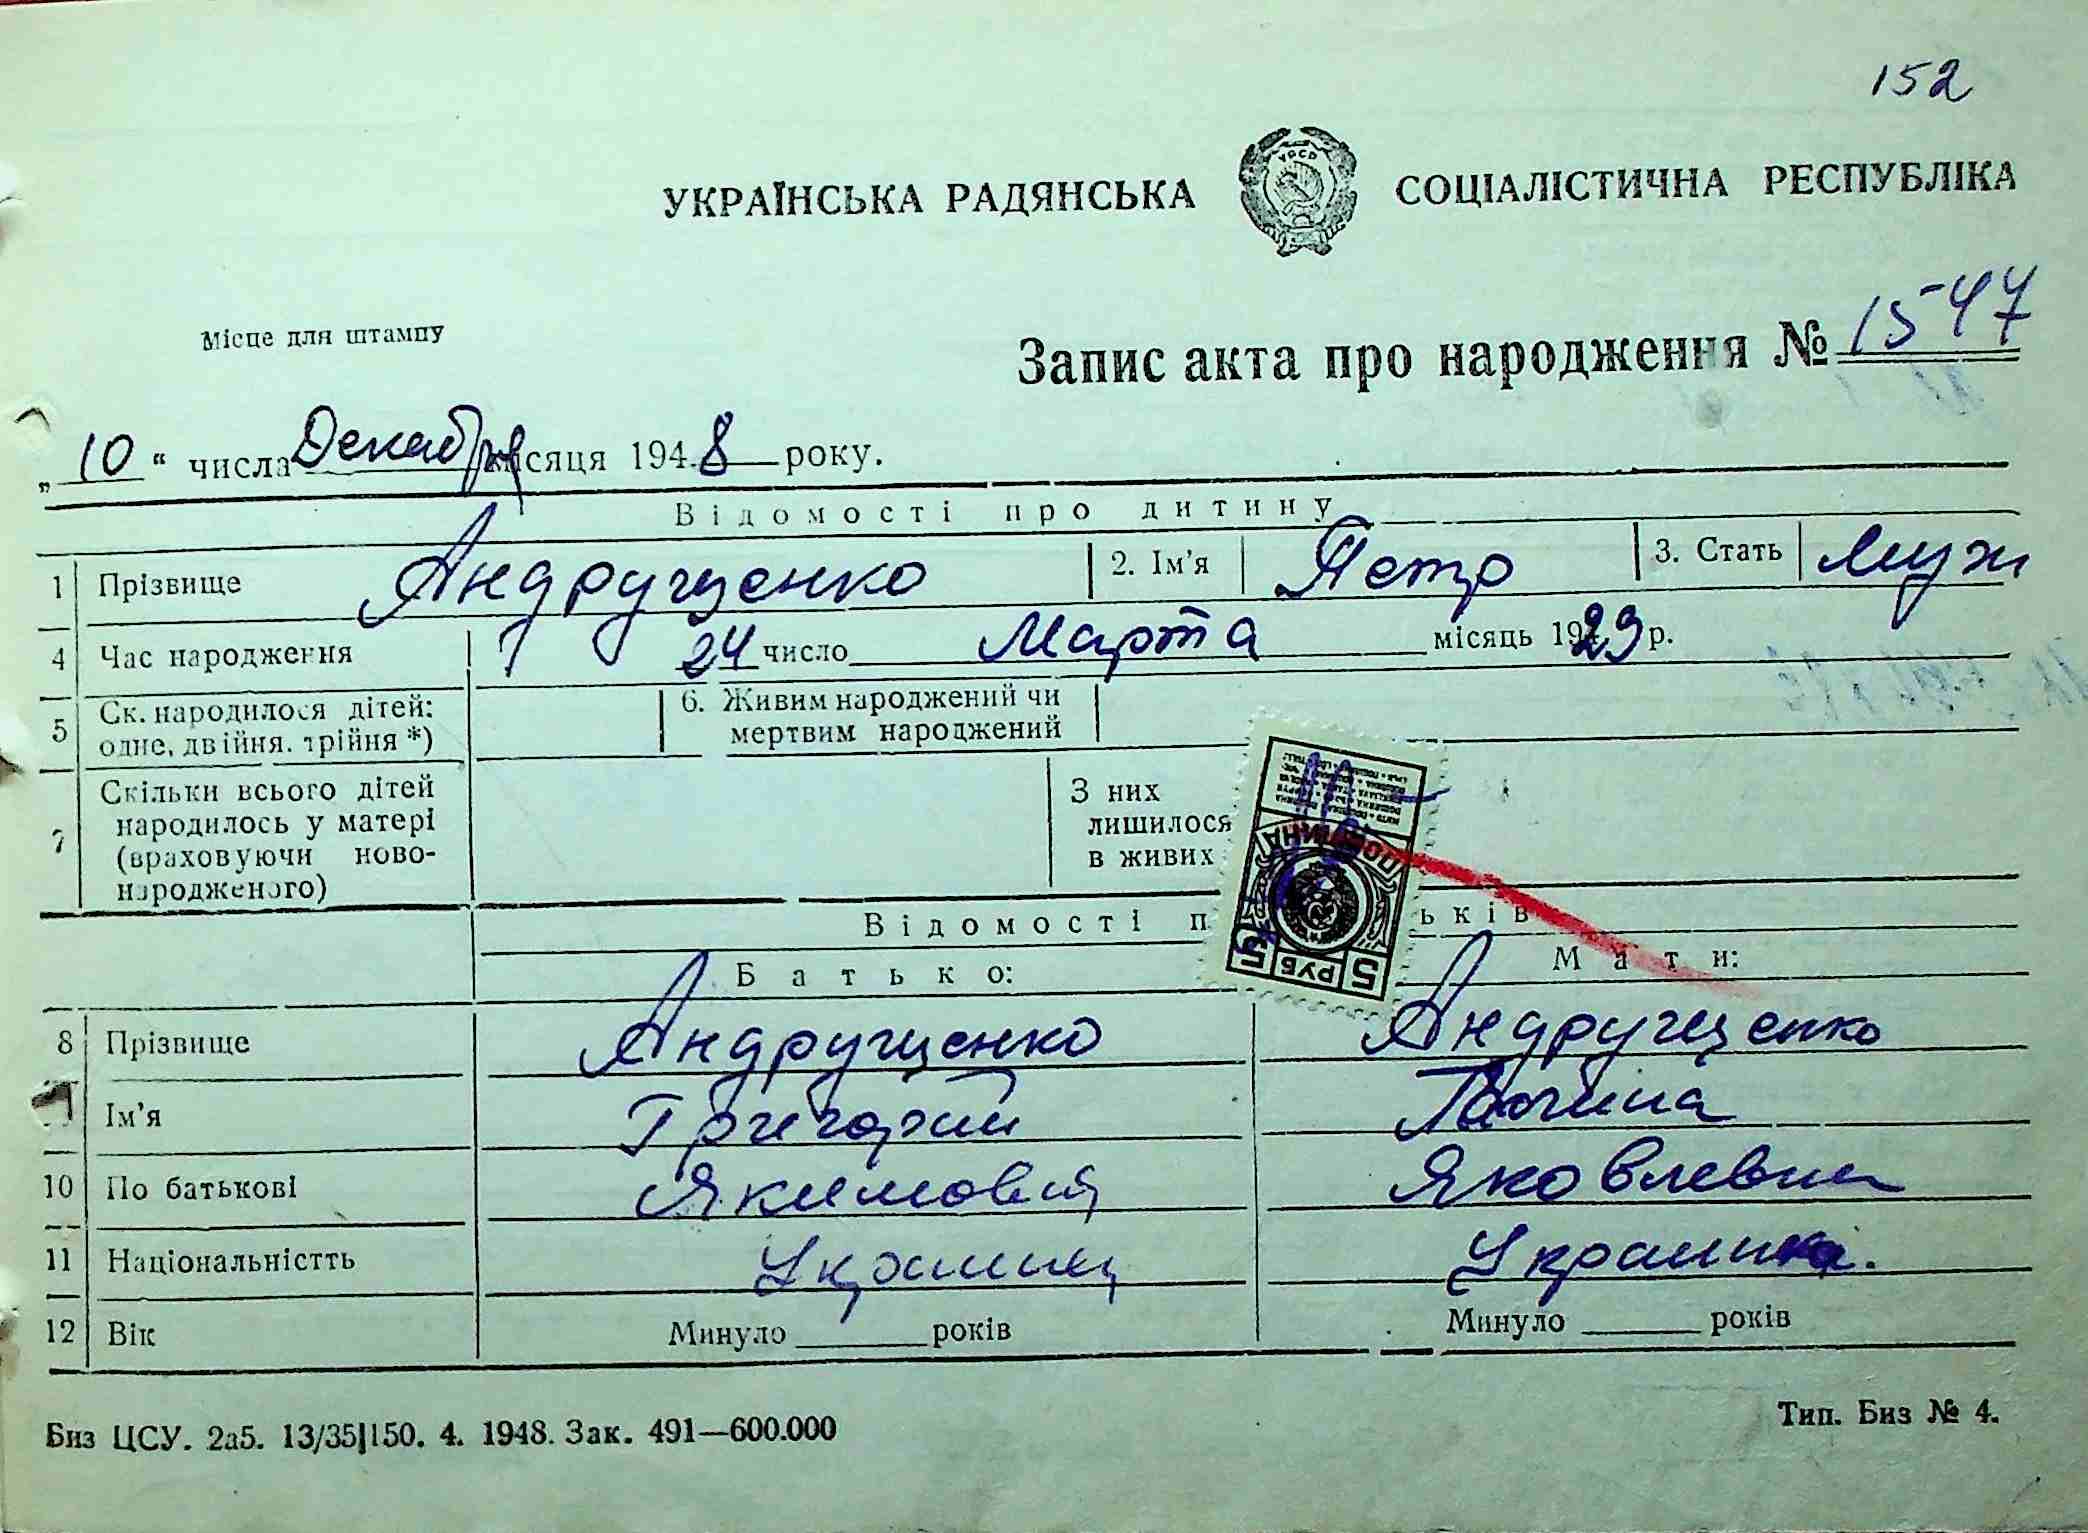 152
УКРАЇНСЬКА РАДЯНСЬКА СОЦІАЛІСТИЧНА РЕСПУБЛІКА
УРСР
Місце для штампу
Запис акта про народження № 1547
„10“ числа Декабря місяця 1948 року.
Відомості про дитину
1 Прізвище Андрущенко 2. Ім’я Петр 3. Стать муж
4 Час народження 24 число Марта місяць 1929 р.
5 Ск. народилося дітей: одне, двійня, трійня *) 6. Живим народжений чи мертвим народжений
7 Скільки всього дітей народилось у матері (враховуючи новонародженого) З них лишилося в живих
Відомості п ьків
Батько: Мати:
8 Прізвище Андрущенко Андрущенко
Ім’я Григорий
10 По батькові Якимович Яковлевна
11 Національністть Украинец Украинка.
12 Вік Минуло ____ років Минуло ____ років
5 РУБ 5
Биз ЦСУ. 2а5. 13/35|150. 4. 1948. Зак. 491—600.000 Тип. Биз № 4.